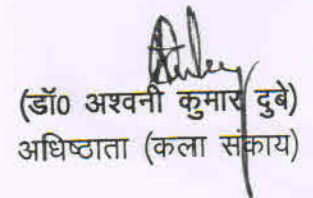 (डॉ0 अश्वनी कुमार दुबे)
अधिष्ठाता (कला संकाय)